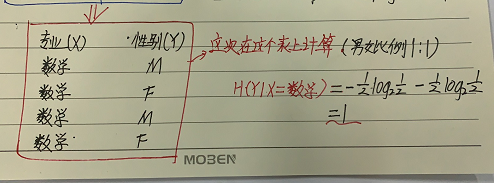 专业(X) 性别(Y)
数学 M
数学 F
数学 M
数学 F
→这次在这个表上计算(男女比例1:1)
H(Y|X=数学)=-½log₂½-½log₂½
=1
MOBEN